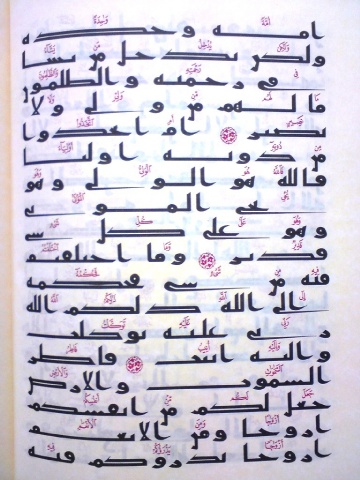 امة وحدة
ولكن يدخل من يشا
في رحمته والظلمون
ما لهم من ولي ولا
نصير ام اتخذوا
من دونه اوليا
فالله هو الولي وهو
يحي الموتى
وهو على كل شي
قدير وما اختلفتم
فيه من شي فحكمه
الى الله ذلكم الله
ربي عليه توكلت
واليه انيب فاطر
السموت والارض
جعل لكم من انفسكم
ازوجا ومن الانعم
ازوجا يذروكم فيه